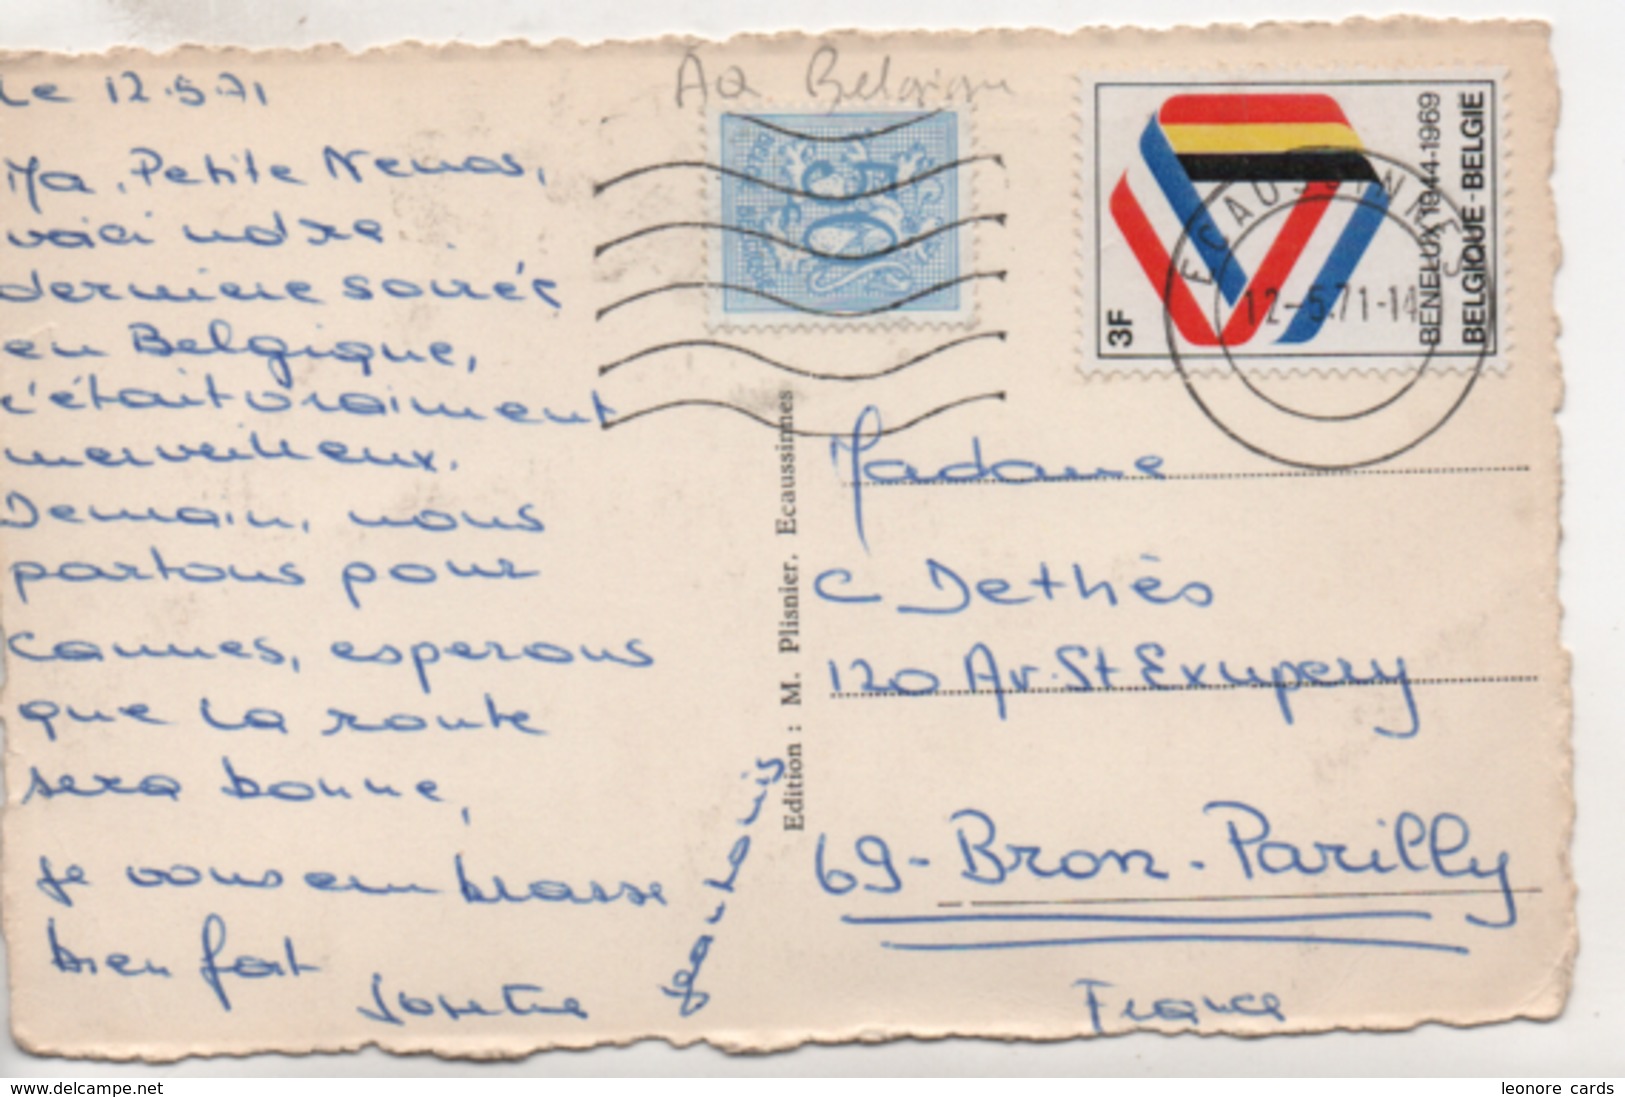 Le 12.5.71
Ma Petite Nenas,
voici notre
derniere soirée
en Belgique,
c'était vraiment
merveilleux.
Demain, nous
partons pour
Cannes, esperons
que la route
sera bonne,
je vous embrasse
bien fort
Josette
Jean-Louis
AQ Belgique
BENELUX 1944-1969
BELGIQUE-BELGIE
3F
50
ECAUSSINNES
12-5.71-14
Edition : M. Plisnier. Ecaussinnes
Madame
C Dethès
120 Av. St Exupery
69-Bron-Parilly
France
www.delcampe.net
leonore cards